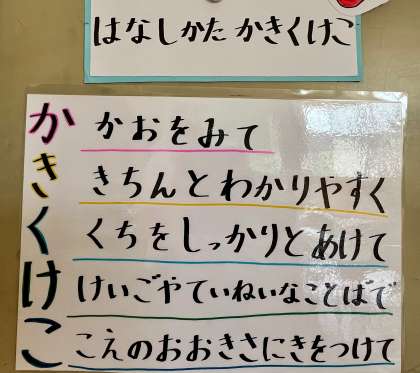 はなしかた かきくけこ
か かおをみて
き きちんとわかりやすく
く くちをしっかりとあけて
け けいごやていねいなことばで
こ こえのおおきさにきをつけて